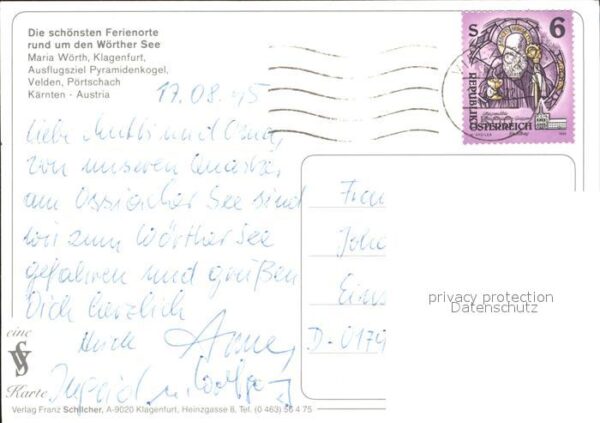 Die schönsten Ferienorte
rund um den Wörther See
Maria Wörth, Klagenfurt,
Ausflugsziel Pyramidenkogel,
Velden, Pörtschach
Kärnten · Austria
S 6
REPUBLIK
ÖSTERREICH
17.08.95
Liebe Mutti und Oma,
von unserem Quartier
am Ossiacher See sind
wir zum Wörther See
gefahren und grüßen
Dich herzlich
Anne,
Ingrid u. Wolfg
Frau
Joha
Eins
D-0179
privacy protection
Datenschutz
eine
Karte
Verlag Franz Schilcher, A-9020 Klagenfurt, Heinzgasse 8, Tel. (0 463) 56 4 75